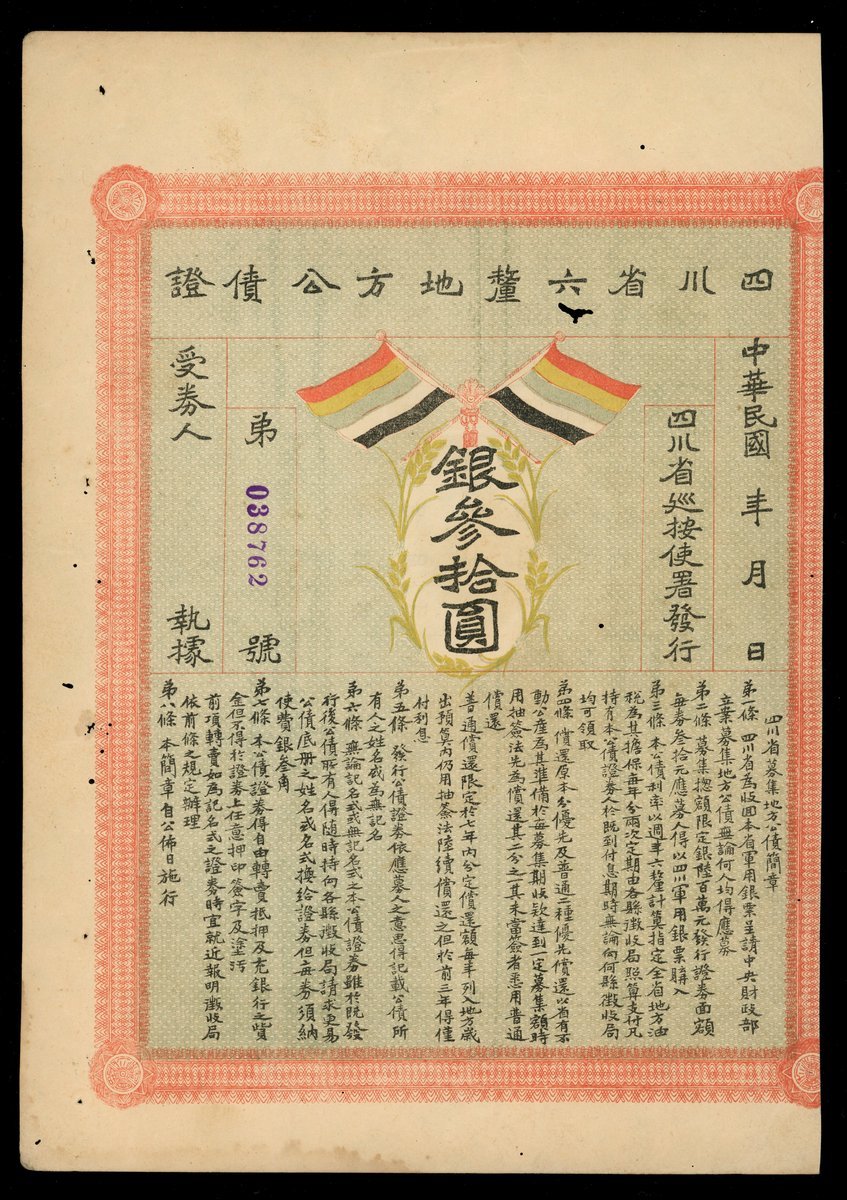 四川省六釐地方公債證
中華民國 年 月 日
四川省巡按使署發行
銀參拾圓
第 038762 號
受券人 執據
四川省募集地方公債簡章
第一條 四川省為收回本省軍用銀票呈請中央財政部
立案募集地方公債無論何人均得應募
第二條 募集總額限定銀陸百萬元發行證券面額
每券叁拾元應募人得以四川軍用銀票購入
第三條 本公債利率以週年六釐計算指定全省地方油
稅為其擔保每年分兩次定期由各縣徵收局照算支付凡
持有本公債證券人於既到付息期時無論向何縣徵收局
均可領取
第四條 償還原本分優先及普通二種優先償還以省有不
動公產為其準備於每募集期收欵達到一定募集額時
用抽簽法先為償還其二分之一其未當簽者悉用普通
償還
普通償還限定於七年內分定償還額每年列入地方歲
出預算內仍用抽簽法陸續償還之但於前三年得僅
付利息
第五條 發行公債證券依應募人之意思得記載公債所
有人之姓名或為無記名
第六條 無論記名式或無記名式之本公債證券雖於既發
行後公債所有人得隨時持向各縣徵收局請求更易
公債底冊之姓名或名式換給證券但每券須納
使費銀叁角
第七條 本公債證券得自由轉賣抵押及充銀行之貨
金但不得於證券上任意押印簽字及塗污
前項轉賣如為記名式之證券時宜就近報明徵收局
依前條之規定辦理
第八條 本簡章自公佈日施行